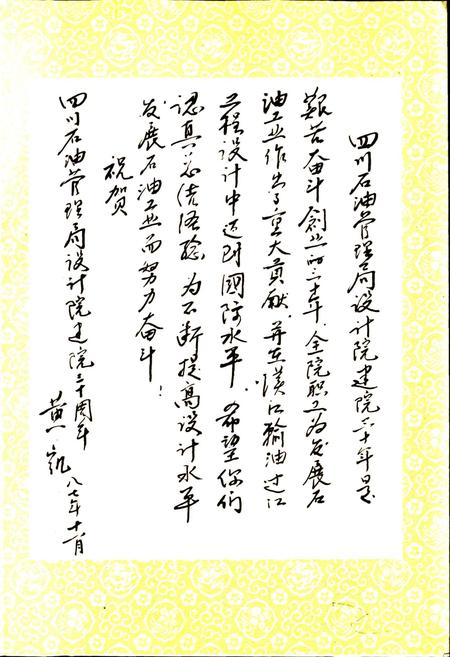 四川石油管理局设计院建院三十年是
艰苦奋斗创业的三十年,全院职工为发展石
油工业作出了重大贡献,并在汉江输油过江
工程设计中达到国际水平。希望你们
認真总结经验,为不断提高设计水平
发展石油工业而努力奋斗!
祝贺
四川石油管理局设计院建院三十周年
黄凯 八七年十一月